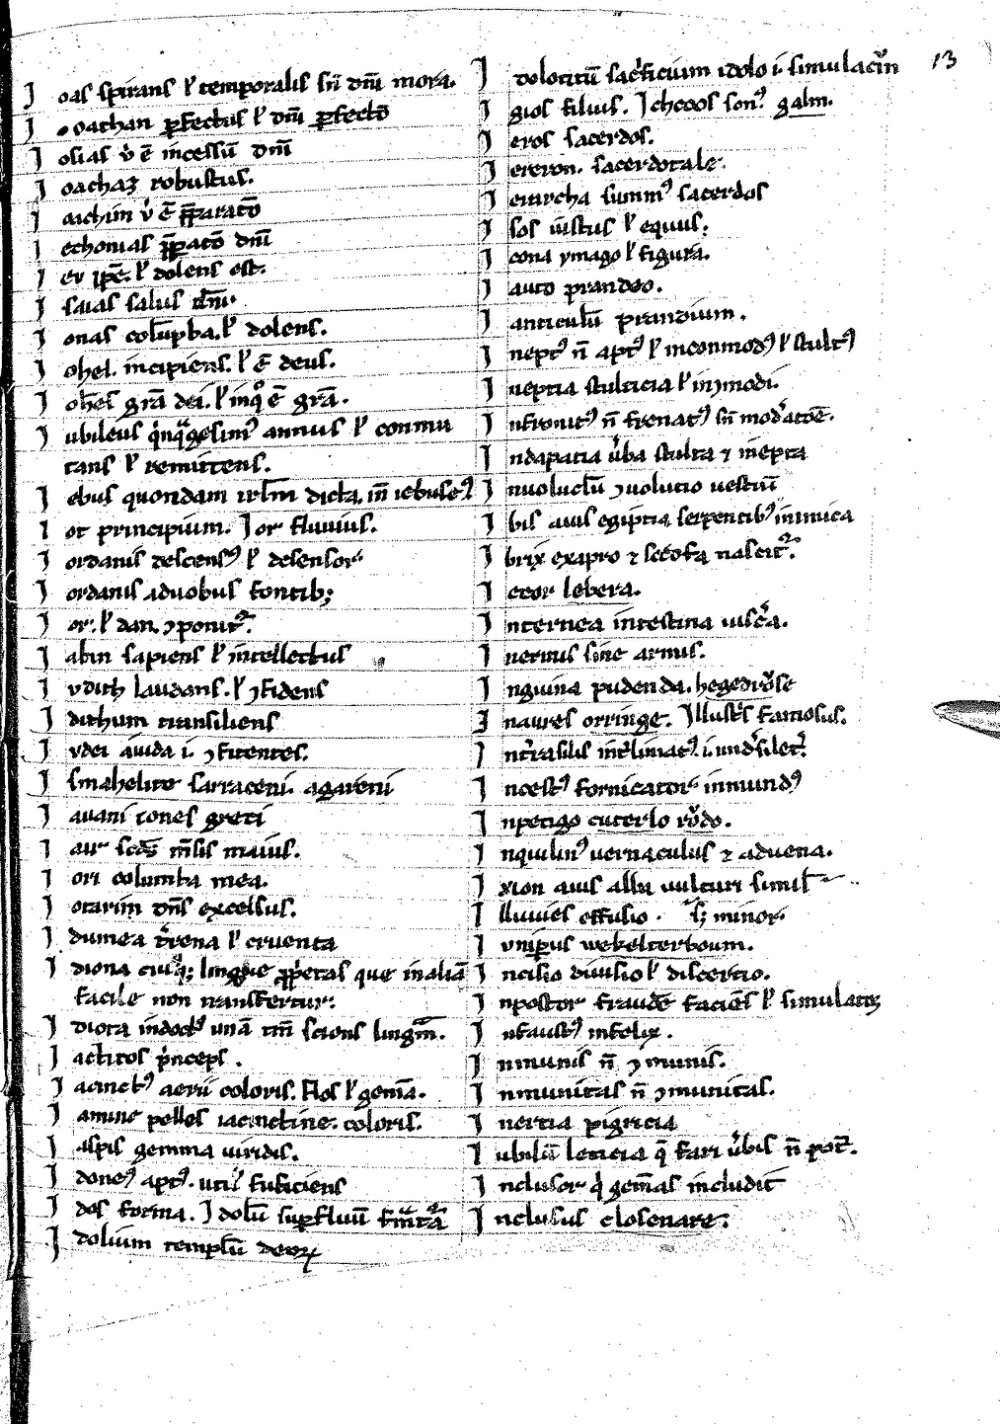 13
J oas spirans ł temporalis siñ dñi mora.
J oathan ꝑfectus ł dñi ꝑfectō
J osias v̉ ē incessū dñi
J oachaz robustus.
J oachim v̉ ē p̄paratō
J echonias p̄paratō dñi
J eu ip̄e. ł dolens est.
J saias salus dñi.
J onas colūpba. ł dolens.
J ohel. incipiens. ł ē deus.
J oh̄es grā dei. ł inq̊ ē grā.
J ubileus q̉nq̈gesimꝰ annus ł conmu
tans ł remittens.
J ebus quondam irlm̄ dicta. iñ iebuseꝰ
J or principium. J or fluuius.
J ordanis descensꝰ ł descensor
J ordanis a duobus fontibꝫ
J or. ł dan. ꝯponit᷑.
J abin sapiens ł intellectus
J udith laudans. ł ꝯfidens
J dithum transiliens
J udei a iuda i. ꝯfitentes.
J smahelite sarraceni. agareni
J auani iones greci
J air sc̄dꝰ m̄sis maius.
J ori columba mea.
J otarim dñs excelsus.
J dumea t̉rena ł cruenta
J diona cuiꝰqꝫ lingue ꝓp̉etas que in aliā
facile non transfertur:
J diota indoctꝰ unā tm̄ sciens linguā.
J actitos p̉nceps.
J acinctꝰ aerii coloris. flos ł gemā.
J antine pelles iacinctine. coloris.
J aspis gemma uiridis.
J doneꝰ aptꝰ. utił sufficiens
J dos forma. J dolū
J dolium templū deoꝝ
J dolotitū sac̉ficium idolo i. simulac̉m
J gios filius. J chcoos sonꝰ. galm.
J eros sacerdos.
J ereron. sacerdotale.
J erarcha summꝰ sacerdos
J sos iustus ł equus.
J cona ymago ł figura.
J auto prandeo.
J anticulū prandium.
J neptꝰ ñ aptꝰ ł inconmodꝰ ł stultꝰ
J neptia stulticia ł inꝯmodi.
J nfronitꝰ ñ frenatꝰ siñ mod̉atōe.
J ndapatia v̉ba stulta ⁊ inepta
J nuoluclū ꝯuolutio uestiū
J bis auis egiptia serpentibꝰ inimica
J brix ex apro ⁊ scrofa nascit᷑.
J ecor lebera.
J nternea intestina uisc̉a.
J nermis sine armis.
J nguina pudenda. hegedrose
J naures orringe. Jllustris famosus.
J nt̉rasilis int̉limatꝰ.
J ncestꝰ fornicator inmundꝰ
J npetigo cuterlo rodo.
J nquilinꝰ uernaculus ⁊ aduena.
J xion auis alba uulturi simił
J lluuies effusio. sꝫ minor
J uniperus wekelterboum.
J ncisio diuisio ł discertio.
J npostor fraudē faciēs ł simulatoꝝ
J nfaustꝰ infelix.
J nmunis ñ ꝯmunis.
J nmunitas ñ ꝯmunitas.
J nertia pigricia
J ubilū leticia q̄ fari v̉bis ñ pot̄.
J nclusor q̉ gemas includit
J nclusus closenare.